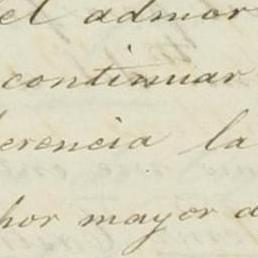 el admor
continuar
erencia la
hor mayor d